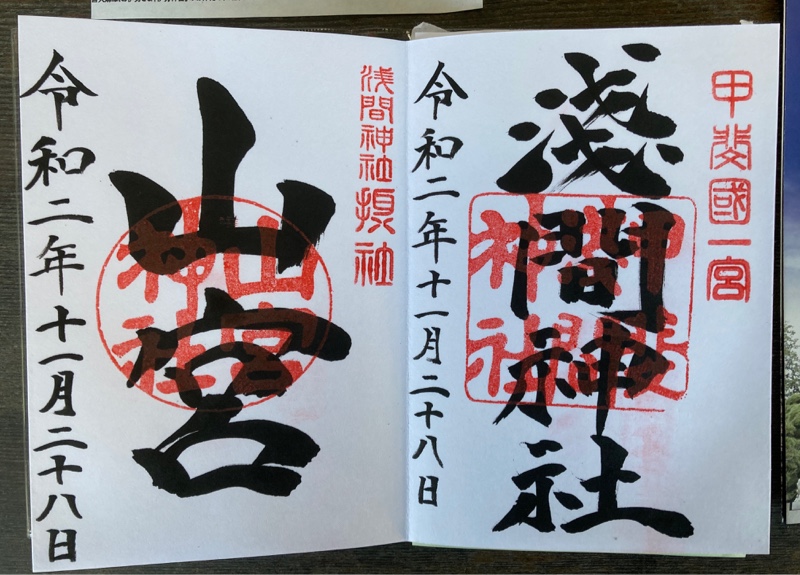 甲斐國一宮
淺間神社
令和二年十一月二十八日
浅間神社摂社
山宮
山宮神社
令和二年十一月二十八日